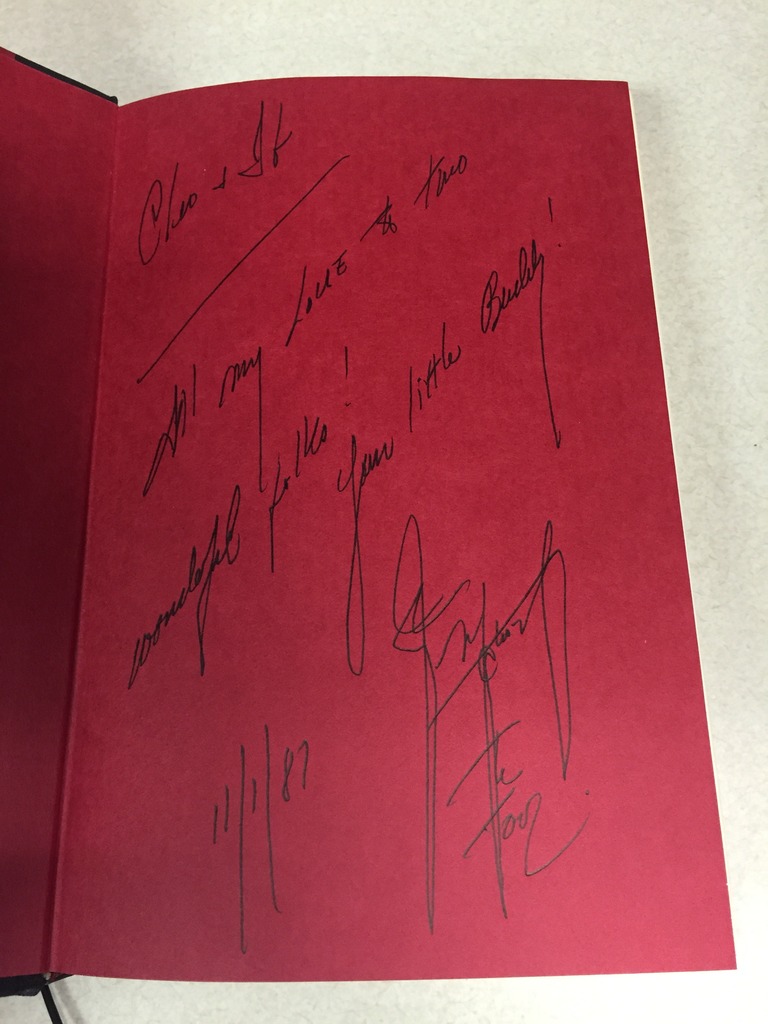 Cleo + Ib
All my Love to two
wonderful folks!
Your little Buddy!
The Fooz
11/1/87